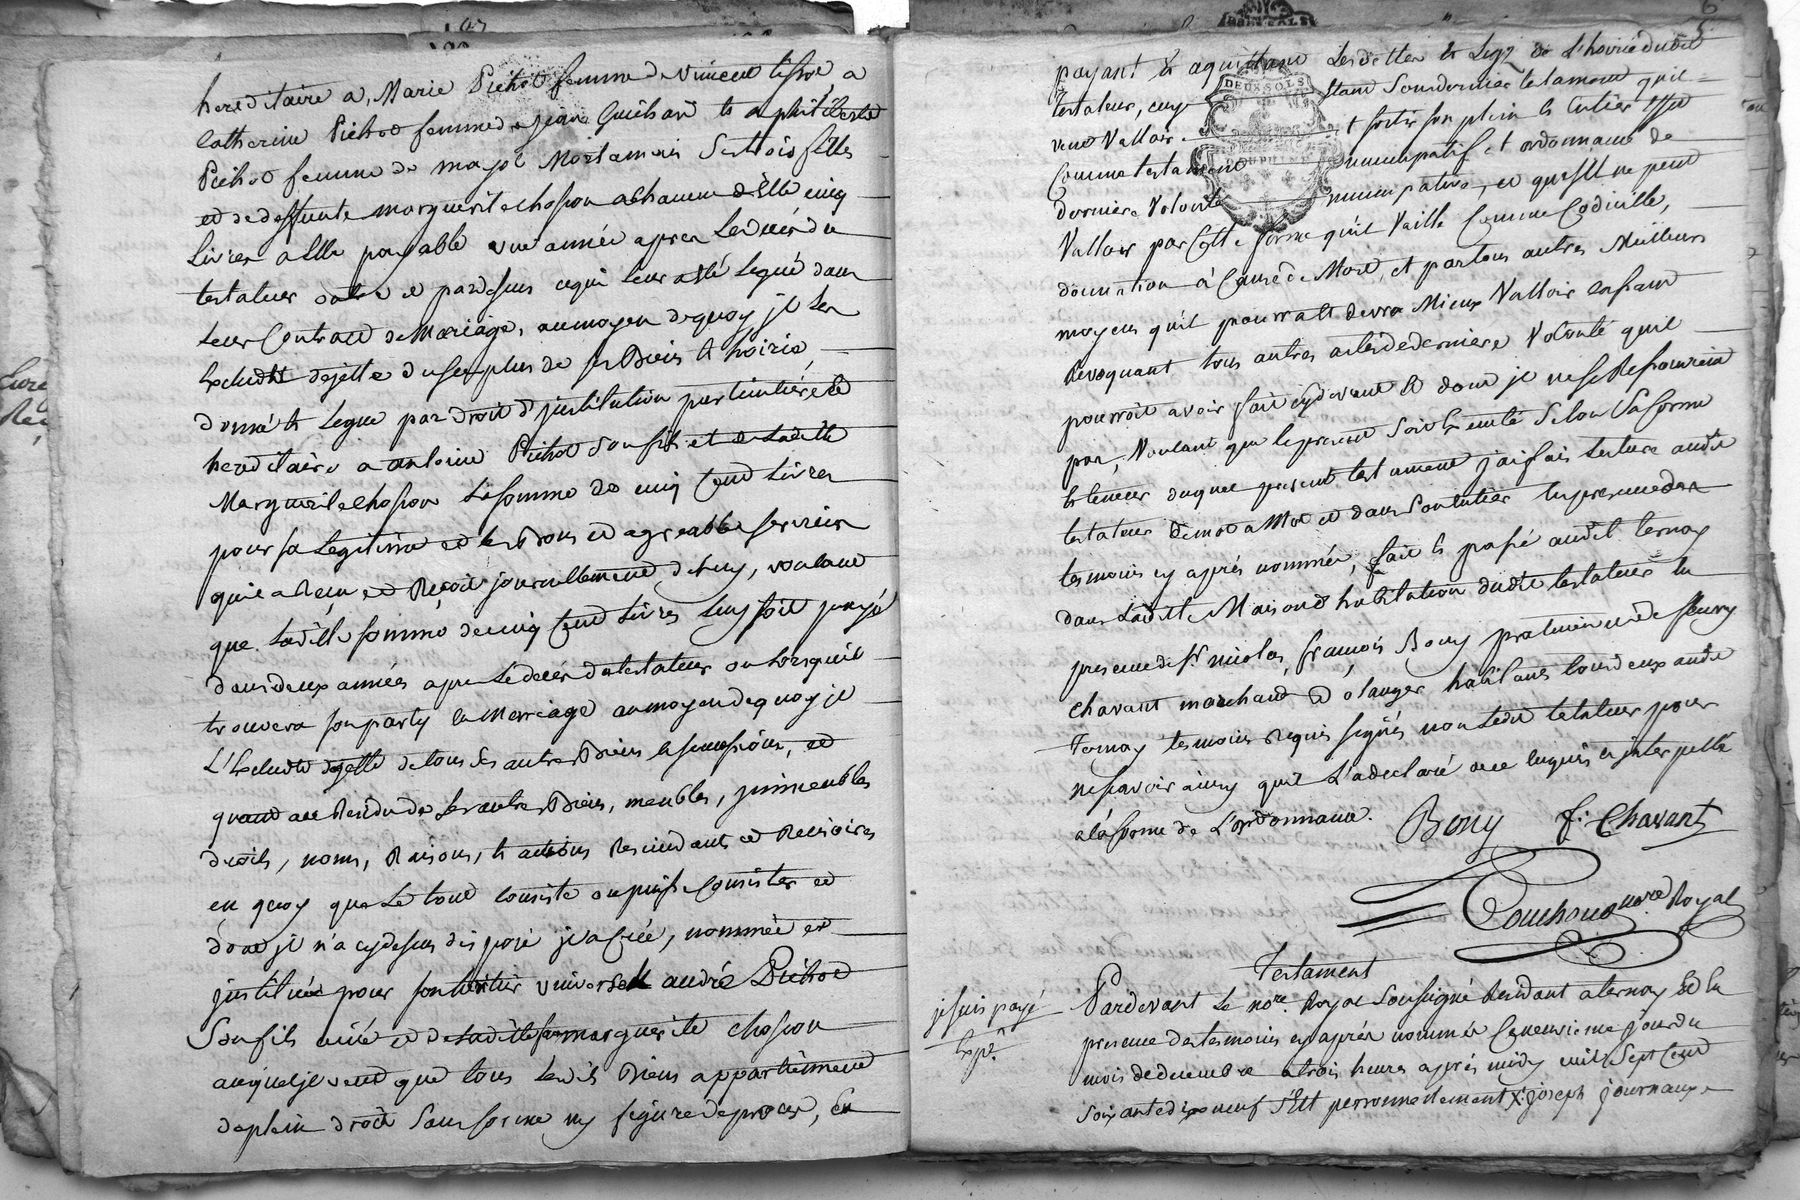 hereditaire a, Marie Pichot femme de vincent
Catherine Pichot femme de jean Guichard & a
Pichot femme de Mortamais Ses trois filles
et de deffunte marguerite chosson a chacune d'Elle cinq
Livres a Elle payable une année apres Le décés du
testateur outre et par dessus ce qui leur a eté Legué dans
Leur Contract de Mariage, aumoyen de quoy jl Les
Exclud & dejette du surplus de ses Biens & hoirie,
donné & Legue par droit d'jnstitution particuliére &
hereditaire a antoine Pichot son fils et de Ladite
Marguerite chosson La somme de cinq Cent Livres
pour sa Legitime et les Bons et agreables services
qu'il a Receu et Reçoit journellement de Luy, voulant
que Ladite somme de cinq Cent Livres Luy soit payé
dans deux années apres Le décés du testateur ou Lorsqu'il
trouvera son party En Marriage aumoyen de quoy jl
L'Exclud & dejette de tous Ses autres Biens & succession, et
quand au Residu de Ses autres Biens, meubles, jmmeubles
droits, noms, Raisons, & actions Rescindants et Rescisoires
en quoy que Le tout consiste ou puisse Consister et
dont jl n'a cy dessus disposé jl a Créé, nommé et
jnstitué pour son heritier universel andré Pichot
Son fils ainé et de Ladite feu marguerite chosson
auquel jl veut que tous Lesdits Biens appartiennent
de plein droit Sans forme ny figure de procés, En
payant & aquittant Les dettes & Legz de L'hoirie dudit
DEUX SOLS
DAUPHINE
testateur, Son dernier testament qu'il
veut Valloir & sortir son plein & Entier effet
Comme testament nuncupatif et ordonnance de
derniere Volonté nuncupative, et que s'Il ne peut
Valloir par Cette forme qu'il Vaille Comme Codicille,
donnation à Cause de Mort, et par tous autres Meilleurs
moyens qu'il pourra & devra Mieux Valloir cassant
Revoquant tous autres actes de derniere Volonté qu'il
pourroit avoir fait cy devant & dont jl ne se Ressouvient
pas, Voulant que le present soit Executé Selon Sa forme
& teneur duquel present testament j'ai fais Lecture audit
testateur de mot a Mot et dans son entier En presence des
tesmoins cy aprés nommés, fait & passé audit ternay
dans Ladite Maison d'habitation dudit testateur En
presence de Sr nicolas françois Bony praticien et de fleury
chavant marchand Boulanger habitants tous deux audit
Ternay tesmoins Requis signés non Ledit testateur pour
ne sçavoir ainsy qu'il L'a declaré de ce enquis & interpellé
a La forme de L'ordonnance. Bony f. Chavant
Couchoud nore Royal
Testament
je suis payé
Expé.
Pardevant Le nore. Royal Soussigné Residant a ternay & En
presence des tesmoins cy aprés nommés Ce neuvieme jour du
mois de decembre a trois heures aprés midy mil Sept Cent
soixante dix neuf s'Est personnellement joseph journaux